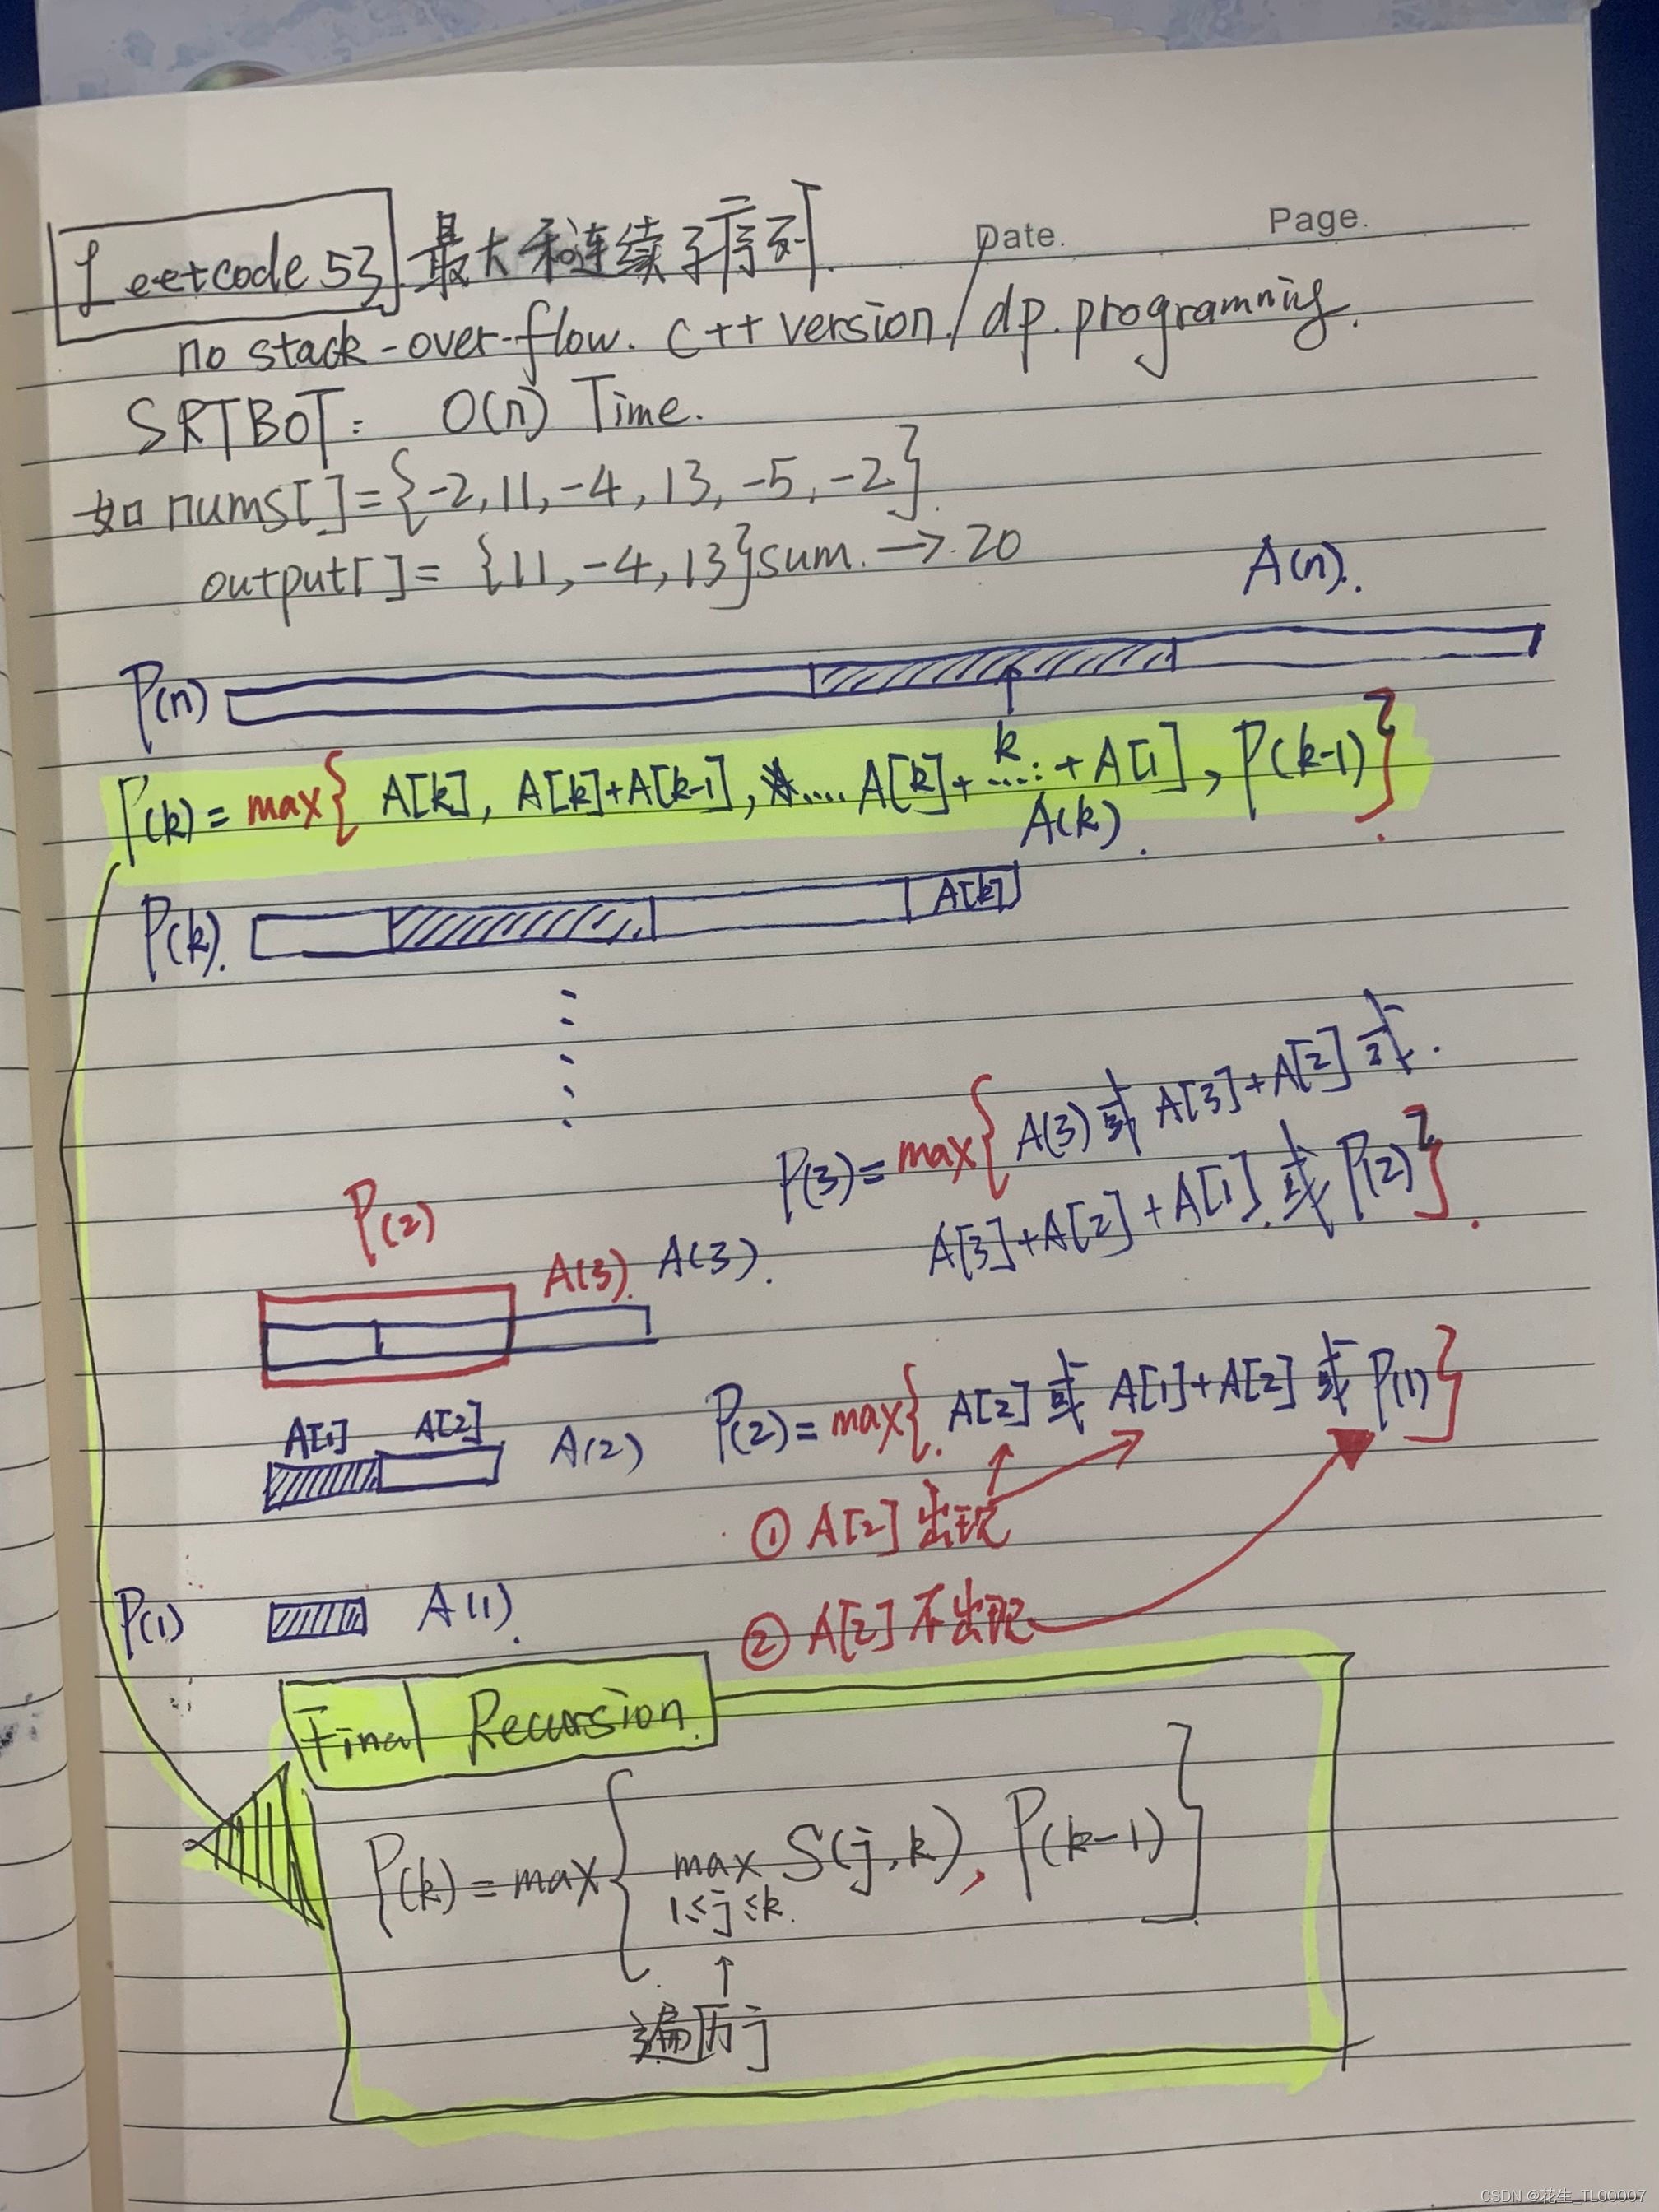 Date.
Page.
Leetcode 53 最大和连续子序列.
no stack-over-flow. C++ version / dp. programming.
SRTBOT: O(n) Time.
如 nums[ ] = {-2, 11, -4, 13, -5, -2}
output[ ] = {11, -4, 13} sum. → 20
A(n).
P(n)
k
P(k) = max{ A[k], A[k]+A[k-1], .... A[k]+ ....: + A[1], P(k-1)}.
A(k).
P(k). A[k]
P(3) = max{ A(3) 或 A[3]+A[2] 或.
A[3]+A[2]+A[1]. 或 P(2)}.
P(2)
A(3). A(3).
A[1] A[2] A(2)
P(2) = max{. A[2] 或 A[1]+A[2] 或 P(1)}
① A[2] 出现
② A[2] 不出现
P(1) A(1).
Final Recursion.
P(k) = max{ max S(j, k), P(k-1)}
1≤j≤k.
↑
遍历j
CSDN @花生_TL00007